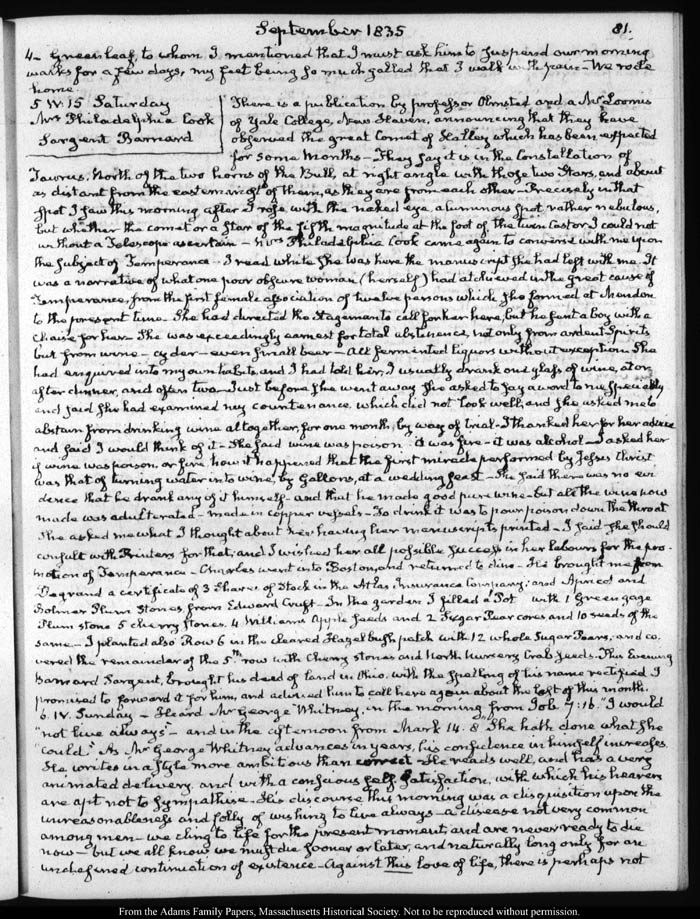 September 1835 81.
4- Greenleaf, to whom I mentioned that I must ask him to suspend our morning
walks for a few days, my feet being so much galled that I walk with pain - We rode
home.
5 IV:15 Saturday
Mrs Philadelphia Cook
Sargent Barnard
There is a publication by professor Olmsted and a Mr Loomis
of Yale College, New Haven, announcing that they have
observed the great Comet of Halley which has been expected
for some Months - They say it is in the Constellation of
Taurus, North of the two horns of the Bull, at right angle with those two Stars, and about
as distant from the eastern of them, as they are from each other - Precisely in that
spot I saw this morning after I rose with the naked eye a luminous spot rather nebulous,
but whether the comet or a Star of the fifth magnitude at the foot of the twin Castor I could not
without a Telescope ascertain - Mrs Philadelphia Cook came again to converse with me upon
the subject of Temperance - I read while she was here the manuscript she had left with me. It
was a narrative of what one poor obscure woman (herself) had atchieved in the great cause of
Temperance, from the first female association of twelve persons which she formed at Mendon
to the present time - She had directed the Stageman to call for her here, but he sent a boy with a
chaise for her - She was exceedingly earnest for total abstinence, not only from ardent Spirits
but from wine - cyder - even small beer - All fermented liquors without exception. She
had enquired into my own habits and I had told her, I usually drank one glass of wine, at or
after dinner, and often two - Just before she went away she asked to say a word to me specially
and said she had examined my countenance which did not look well, and she asked me to
abstain from drinking wine altogether, for one month, by way of trial - I thanked her for her advice
and said I would think of it - She said wine was poison - it was fire - it was alcohol - I asked her
if wine was poison, or fire how it happened that the first miracle performed by Jesus Christ
was that of turning water into wine, by Gallons, at a wedding feast - She said there was no evi
dence that he drank any of it himself - and that he made good pure wine - but all the wine now
made was adulterated - made in copper vessels - To drink it was to pour poison down the throat
She asked me what I thought about her having her manuscripts printed - I said she should
consult with Printers for that; and I wished her all possible success in her labours for the pro-
motion of Temperance - Charles went into Boston, and returned to dine - He brought me from
Degrand a certificate of 3 Shares of Stock in the Atlas Insurance Company; and Apricot and
Bolmer Plum Stones from Edward Cruft - In the garden I filled a Pot with 1 Green gage
Plum stone 5 cherry stones. 4 Williams Apple seeds and 2 Sugar Pear cores and 10 seeds of the
same - I planted also Row 6 in the cleared Hazel bush patch with 12 whole Sugar Pears; and co,
vered the remainder of the 5th row with Cherry stones and North Nursery Crab seeds. This Evening
Barnard Sargent, brought his deed of land in Ohio. with the Spelling of his name rectified I
promised to forward it for him, and advised him to call here again about the last of this month.
6. IV. Sunday - Heard Mr George Whitney, in the morning from Job. 7:16. "I would
"not live always" - and in the afternoon from Mark 14. 8 "She hath done what she
"could." As Mr George Whitney advances in years, his confidence in himself increases.
He writes in a style more ambitious than correct - He reads well, and has a very
animated delivery, and with a conscious self Satisfaction, with which his hearers
are apt not to sympathise. His discourse this morning was a disquisition upon the
unreasonableness and folly of wishing to live always - a disease not very common
among men - we cling to life for the present moment, and are never ready to die
now - but we all know we must die sooner or later, and naturally long only for an
undefined continuation of existence - Against this love of life, there is perhaps not
From the Adams Family Papers, Massachusetts Historical Society. Not to be reproduced without permission.